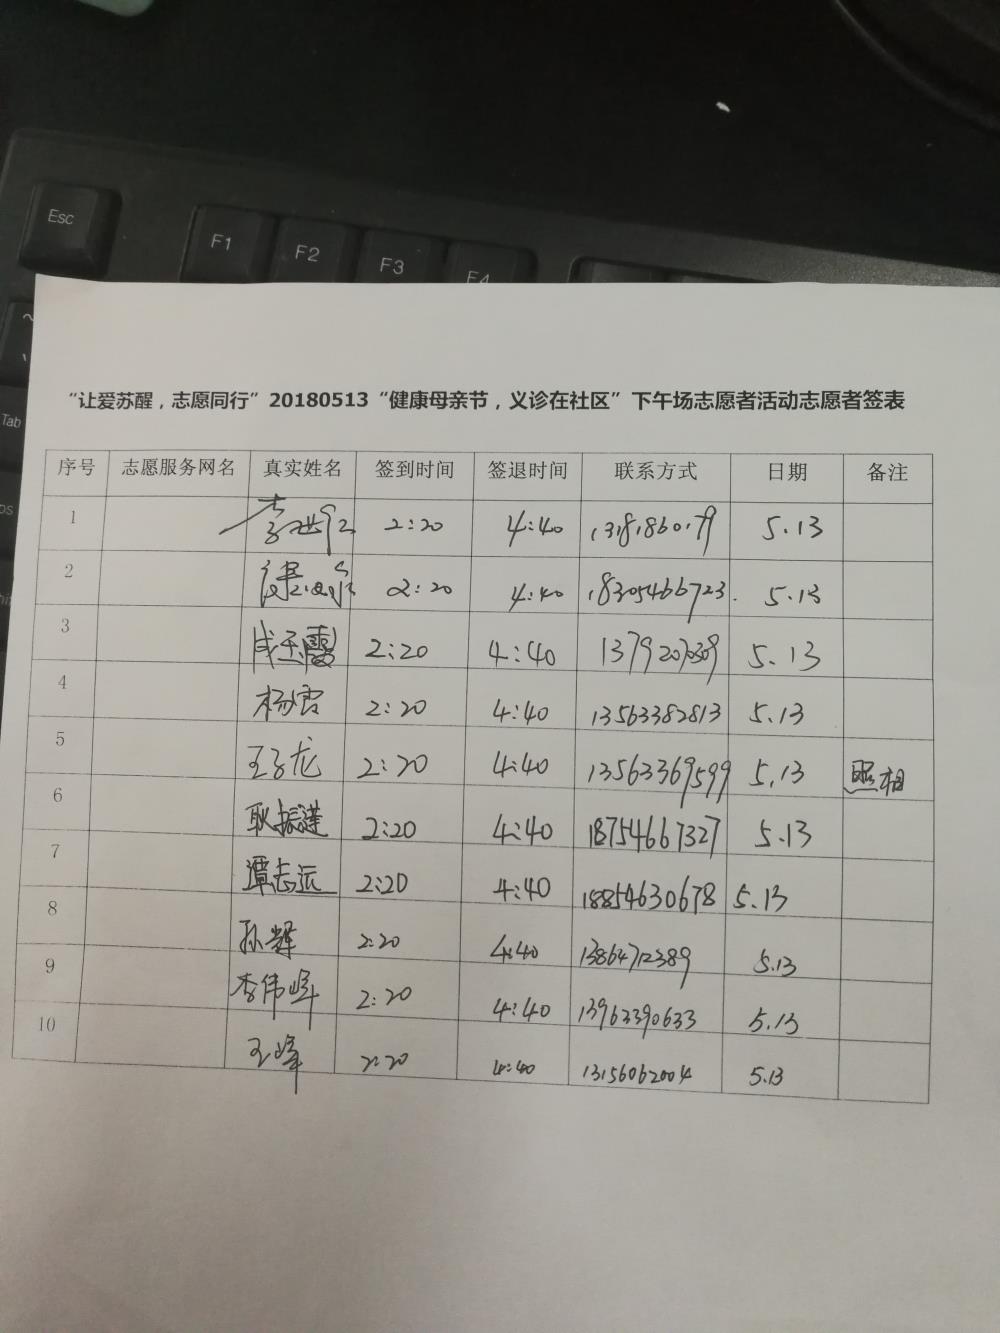 Esc
F1 F2 F3 F4
Tab
“让爱苏醒，志愿同行”20180513“健康母亲节，义诊在社区”下午场志愿者活动志愿者签表
序号 志愿服务网名 真实姓名 签到时间 签退时间 联系方式 日期 备注
1 2:20 4:40 5.13
2 2:20 4:40 18305466723. 5.13
3 成玉霞 2:20 4:40 5.13
4 杨雪 2:20 4:40 13563382813 5.13
5 王子龙 2:20 4:40 13563369599 5.13 照相
6 耿振莲 2:20 4:40 18754667327 5.13
7 谭志远 2:20 4:40 18854630678 5.13
8 孙辉 2:20 4:40 5.13
9 李伟峰 2:20 4:40 13963390633 5.13
10 王峰 2:20 4:40 13156062004 5.13